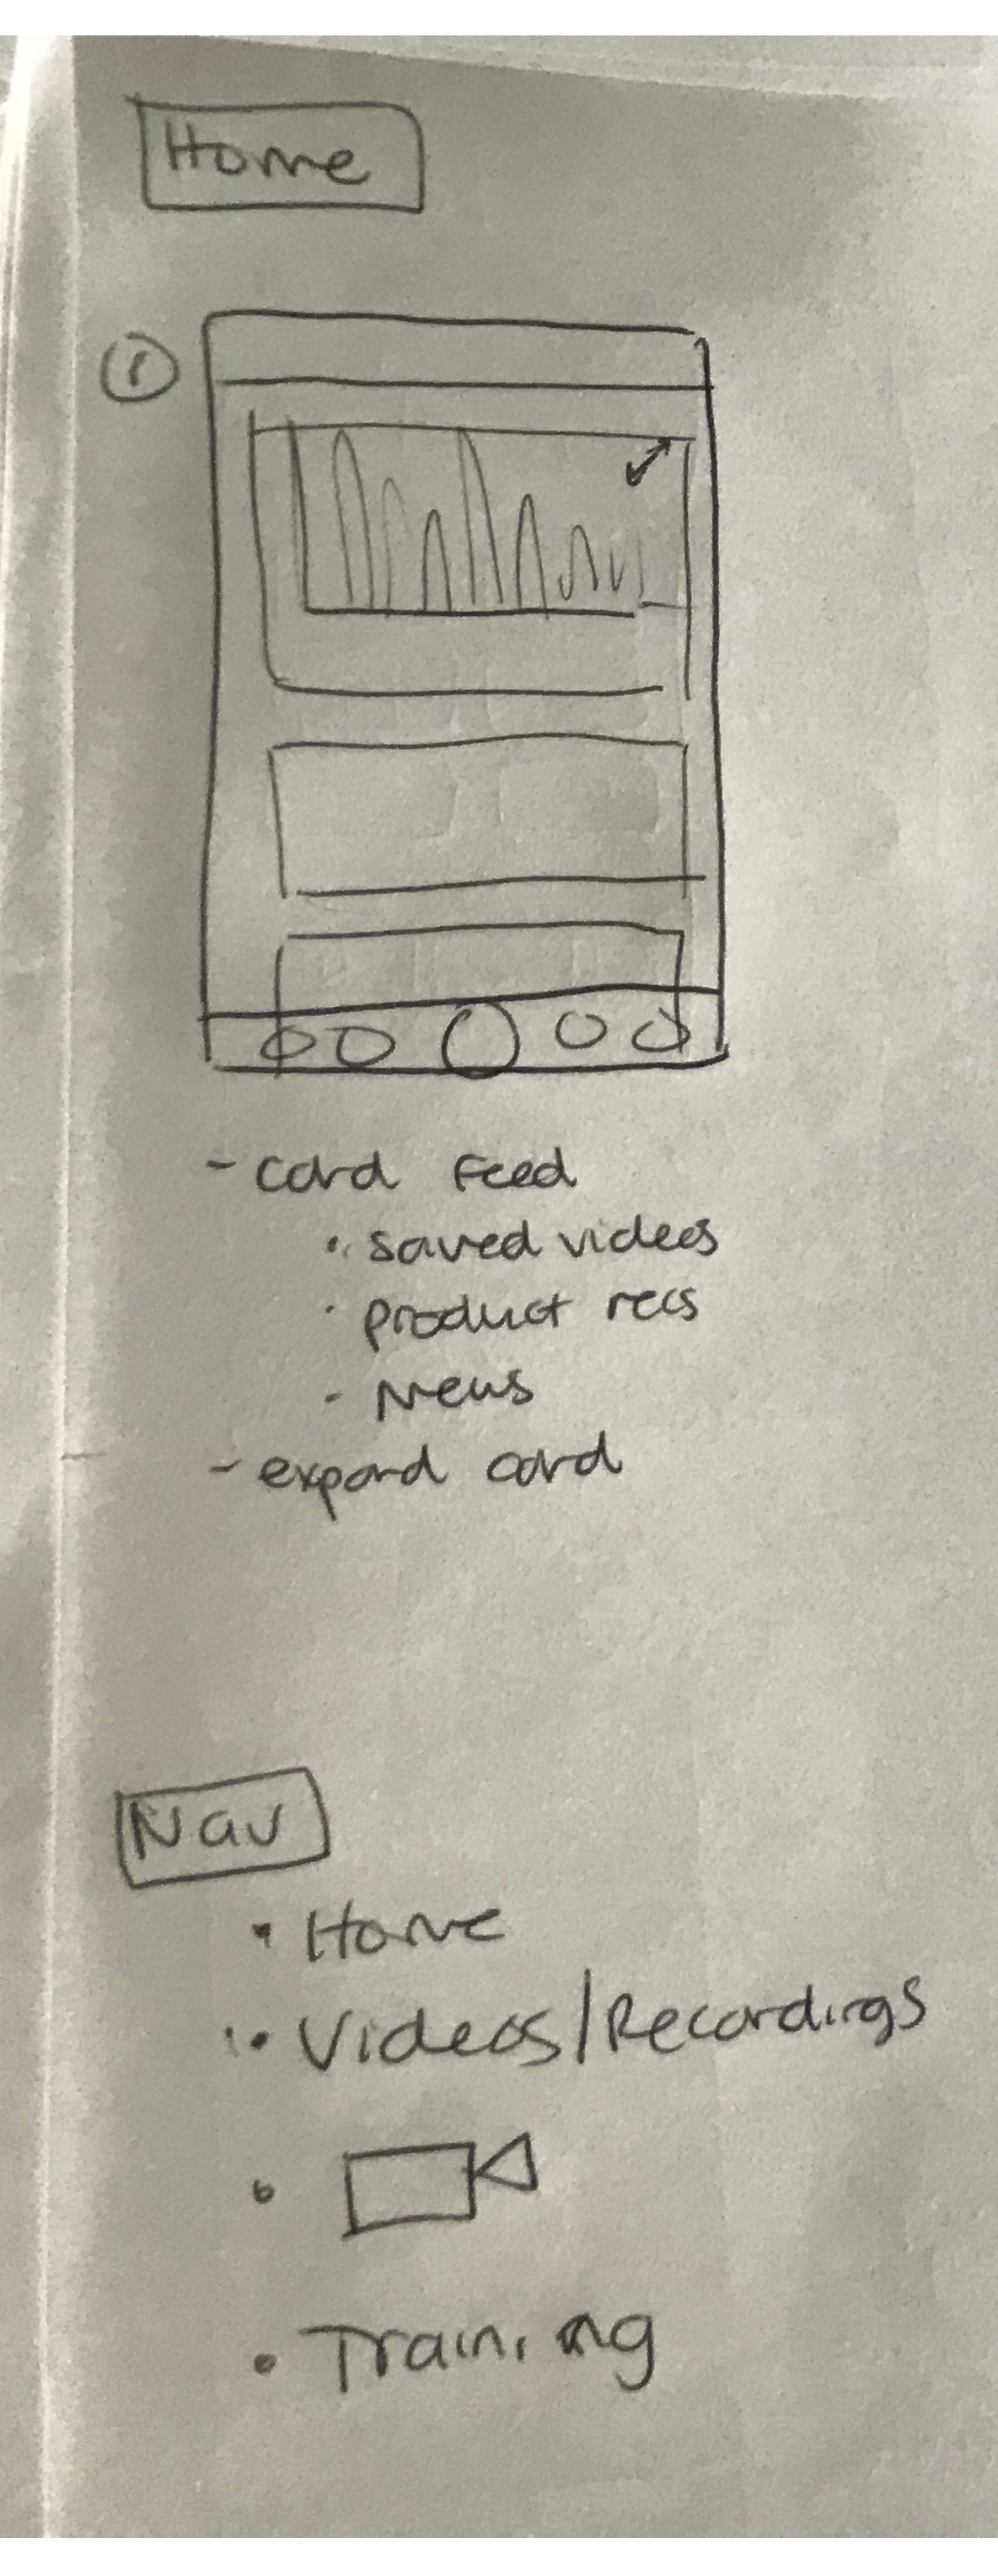 Home
1
- card Feed
• saved videos
· product recs
- News
- expand card
Nav
• Home
• Videos/Recordings
•
• Training